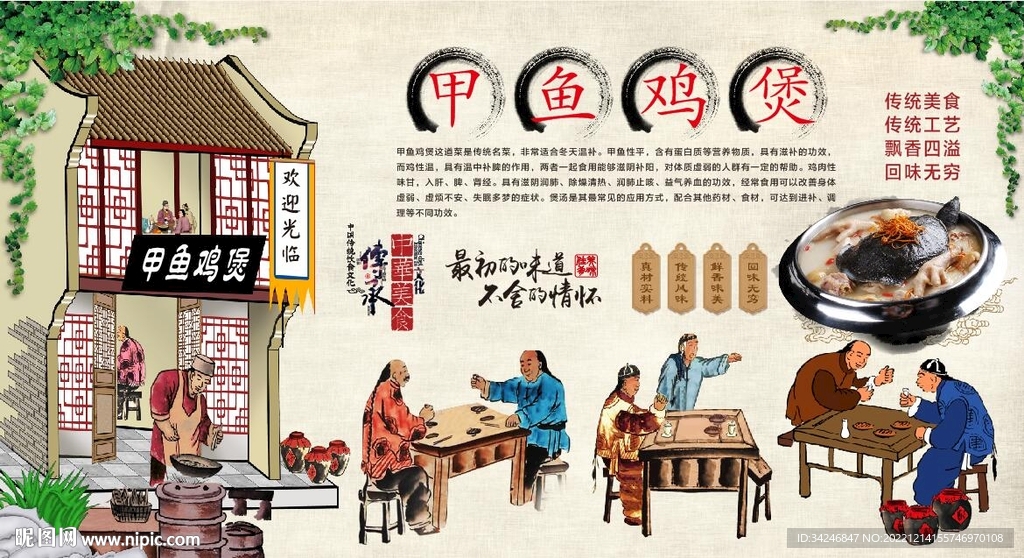 甲鱼鸡煲
传统美食
传统工艺
飘香四溢
回味无穷
甲鱼鸡煲这道菜是传统名菜，非常适合冬天温补。甲鱼性平，含有蛋白质等营养物质，具有滋补的功效，
而鸡性温，具有温中补脾的作用，两者一起食用能够滋阴补阳，对体质虚弱的人群有一定的帮助。鸡肉性
味甘，入肝、脾、肾经。具有滋阴润肺、除燥清热、润肺止咳、益气养血的功效，经常食用可以改善身体
虚弱、虚烦不安、失眠多梦的症状。煲汤是其最常见的应用方式，配合其他药材、食材，可达到进补、调
理等不同功效。
欢迎光临
甲鱼鸡煲
中国传统饮食文化
传承
中華美食
最初的味道
不舍的情怀
真材实料
传统风味
鲜香味美
回味无穷
昵图网 www.nipic.com
ID:34246847 NO:20221214155746970108